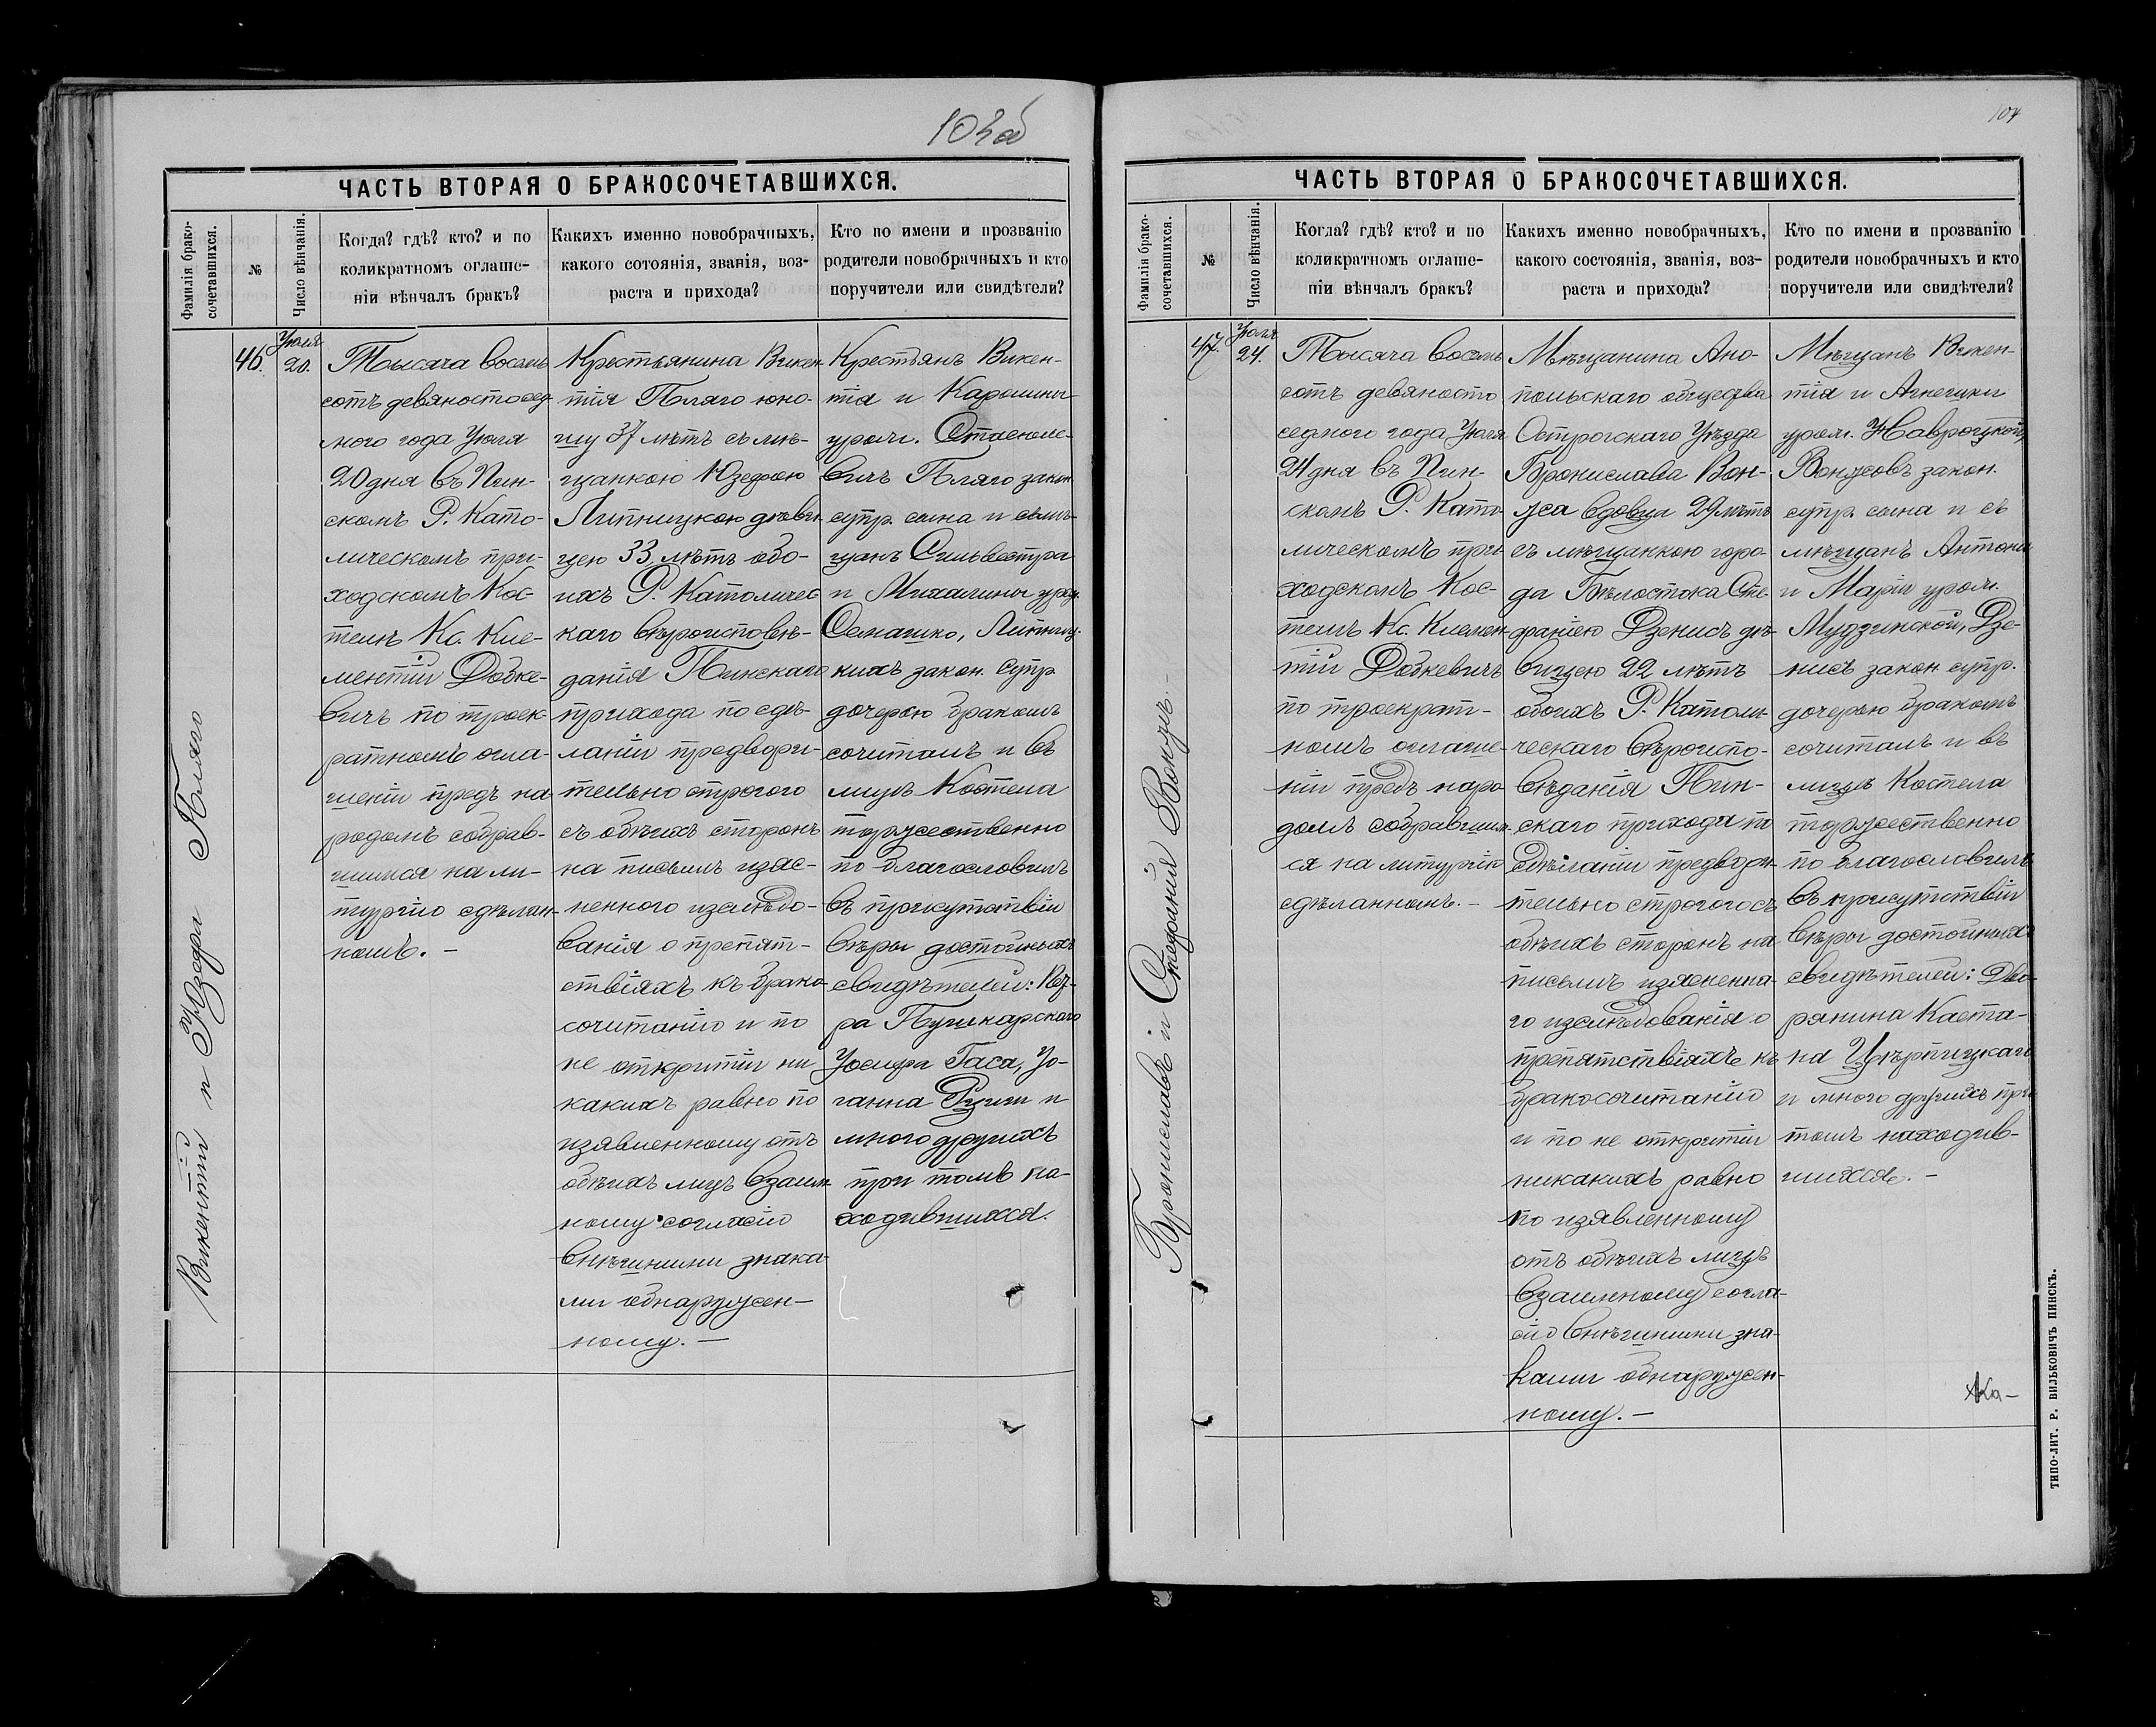 103об
ЧАСТЬ ВТОРАЯ О БРАКОСОЧЕТАВШИХСЯ.
Фамилія брако-
сочетавшихся.
№
Число вѣнчанія.
Когда? гдѣ? кто? и по
коликратномъ оглаше-
ніи вѣнчалъ бракъ?
Какихъ именно новобрачныхъ,
какого сотоянія, званія, воз-
раста и прихода?
Кто по имени и прозванію
родители новобрачныхъ и кто
поручители или свидѣтели?
Викентій и Юзефа Пляго
46.
Іюля
20.
Тысяча восемь
сотъ девяносто сед
мого года Іюля
20 дня въ Пин-
скомъ Р. Като-
лическомъ при-
ходскомъ Кос-
телѣ Кс. Кле-
ментій Добке-
вичъ по троек-
ратномъ огла-
шеніи предъ на
родомъ собрав-
шимся на ли-
тургію сдѣлан-
номъ. —
Крестьянина Викен
тія Пляго юно-
шу 37 лѣтъ съ мѣ-
щанкою Юзефою
Липницкою дѣви-
цею 33 лѣтъ обо-
ихъ Р. Католичес
каго вѣроисповѣ-
данія Пинскаго
прихода по сдѣ-
ланіи предвори-
тельно строгого
съ обѣихъ сторонъ
на письмѣ изяс-
неннаго изслѣдо-
ванія о препят-
ствіяхъ къ брако-
сочитанію и по
не открытіи ни
какихъ равно по
изявленному отъ
обѣихъ лицъ взаим-
ному согласію
внѣшними знака-
ми обнаружен-
ному. —
Крестьянъ Викен-
тія и Каролины
урожд. Стасюле-
вичъ Пляго закон.
супр. сына и съ мѣ-
щанъ Сильвестра
и Михалины урож.
Семашко, Липниц-
кихъ закон. супр.
дочерью бракомъ
сочиталъ и въ
лицѣ Костела
торжественно
по благословилъ
въ присутствіи
вѣры достойныхъ
свидѣтелей: Каз-
ра Пушкарского
Іосифа Гаса, Іо-
ганна Рузги и
много другихъ
при томъ на-
ходившихся.
104
ЧАСТЬ ВТОРАЯ О БРАКОСОЧЕТАВШИХСЯ.
Фамилія брако-
сочетавшихся.
№
Число вѣнчанія.
Когда? гдѣ? кто? и по
коликратномъ оглаше-
ніи вѣнчалъ бракъ?
Какихъ именно новобрачныхъ,
какого состоянія, званія, воз-
раста и прихода?
Кто по имени и прозванію
родители новобрачныхъ и кто
поручители или свидѣтели?
Брониславъ и Стефанія Вонжъ. —
47.
Іюля
24.
Тысяча восемь
сотъ девяносто
седмого года Іюля
24 дня въ Пин-
скомъ Р. Като-
лическомъ при-
ходскомъ Кос-
телѣ Кс. Клемен-
тій Добкевичъ
по троекрат-
номъ оглаше-
ніи предъ наро-
домъ собравшим-
ся на литургію
сдѣланномъ. —
Мѣщанина Ано-
польскаго общества
Острогскаго Уѣзда
Бронислава Вон-
жа вдовца 29 лѣтъ
съ мѣщанкою горо-
да Бѣлостока Сте-
фаніею Дзенисъ дѣ-
вицею 22 лѣтъ
обоихъ Р. Католи-
ческаго вѣроиспо-
вѣданія Пин-
скаго прихода по
сдѣланіи предвори-
тельно строгого съ
обѣихъ сторонъ на
письмѣ изясненна-
го изслѣдованія о
препятствіяхъ къ
бракосочитанію
и по не открытіи
никакихъ равно
по изявленному
отъ обѣихъ лицъ
взаимному согла-
сію внѣшними зна-
ками обнаружен-
ному. —
Мѣщанъ Викен-
тія и Агнешки
урож. Наврацкой,
Вонжовъ закон.
супр. сына и съ
мѣщанъ Антона
и Маріи урож.
Мудзинской, Дзе-
нисъ закон. супр.
дочерью бракомъ
сочиталъ и въ
лицѣ Костела
торжественно
по благословилъ
въ присутствіи
вѣры достойныхъ
свидѣтелей: Дво-
рянина Каета-
на Цѣрпицкаго
и много другихъ при
томъ находив-
шихся. —
Ка-
ТИПО-ЛИТ. Р. ВИЛЬКОВИЧЪ ПИНСКЪ.